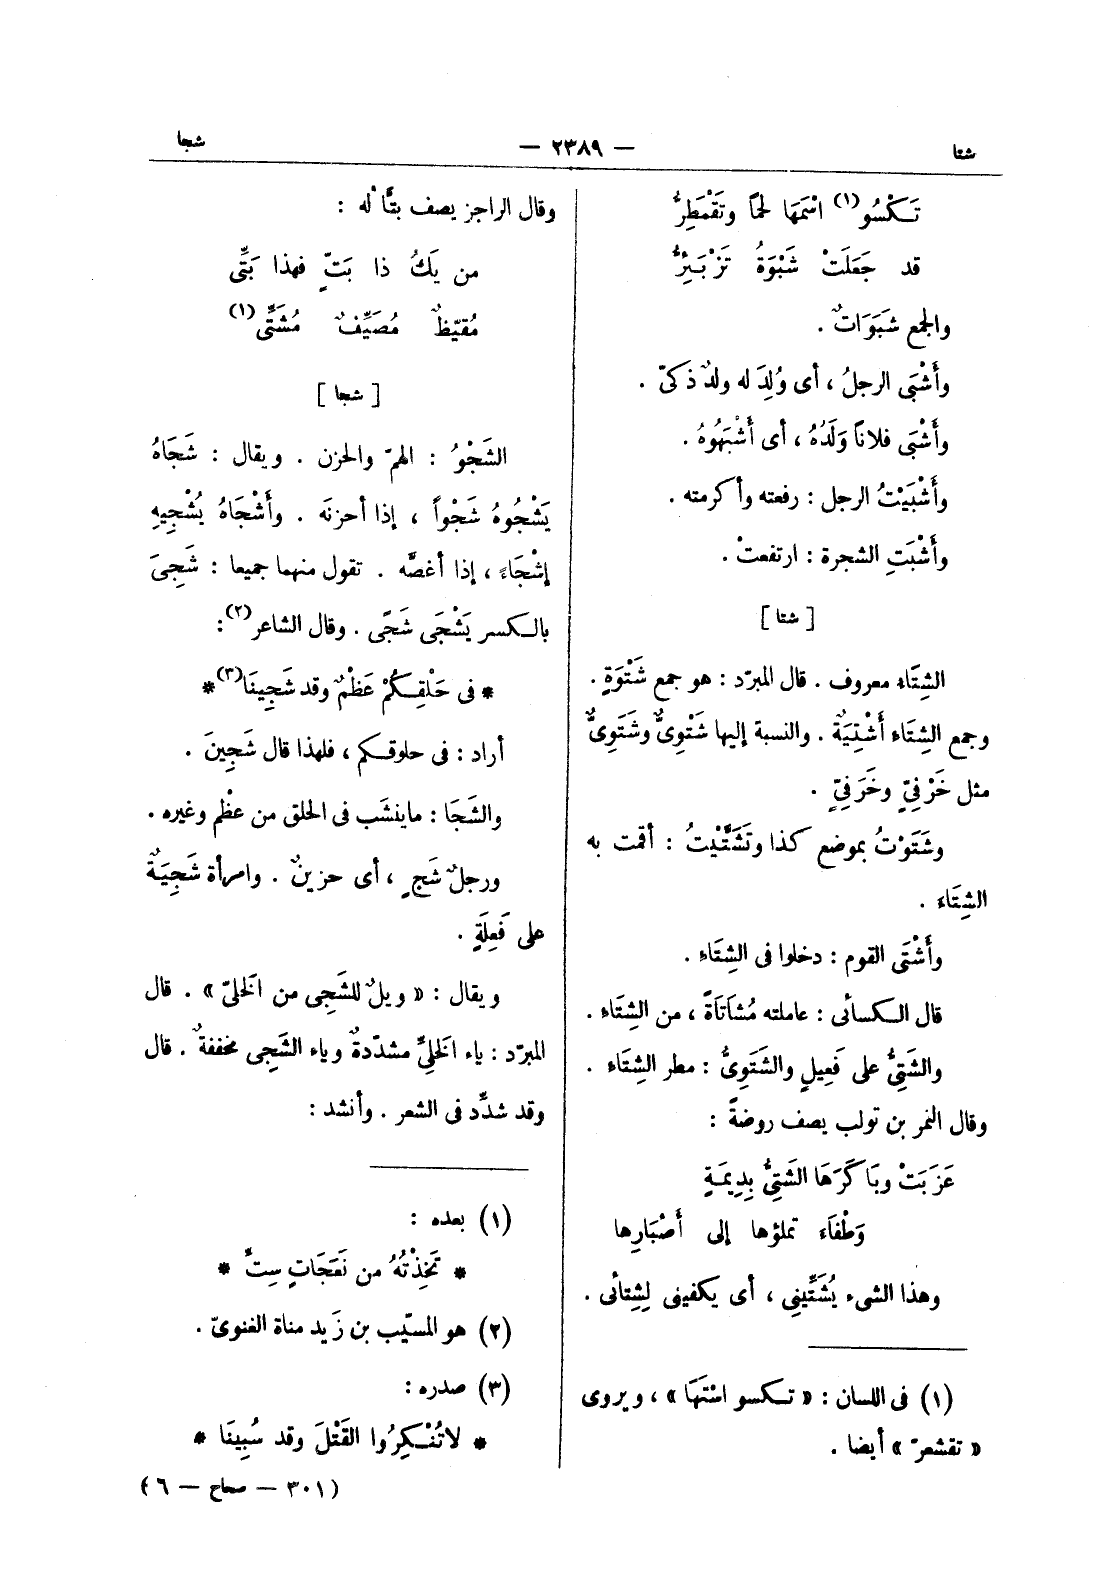 شتا
— ٢٣٨٩ —
شجا
تَكْسُو(١) اسْمَهَا لحمًا وتَقْمَطِرُّ
قد جَعَلَتْ شَبْوَةُ تَزْبَئِرُّ
والجمع شَبَوَاتٌ .
وأَشْبَى الرجلُ ، أى وُلِدَ له ولدٌ ذكىّ .
وأَشْبَى فلانًا وَلَدُهُ ، أى أَشْبَهُوهُ .
وأَشْبَيْتُ الرجل : رفعته وأكرمته .
وأَشْبَتِ الشجرة : ارتفعتْ .
[ شتا ]
الشِتَاء معروف . قال المبرّد : هو جمع شَتْوَةٍ .
وجمع الشِتَاءِ أَشْتِيَةٌ . والنسبة إليها شَتْوِىٌّ وشَتَوِىٌّ
مثل خَرْفِىٍّ وخَرَفِىٍّ .
وشَتَوْتُ بموضع كذا وتَشَتَّيْتُ : أقمت به
الشِتَاءَ .
وأَشْتَى القوم : دخلوا فى الشِتَاءِ .
قال الكسائى : عاملته مُشَاتَاةً ، من الشِتَاءِ .
والشَتِىُّ على فَعِيلٍ والشَتَوِىُّ : مطر الشِتَاءِ .
وقال النمر بن تولب يصف روضةً :
عَزَبَتْ وبَاكَرَهَا الشَتِىُّ بِدِيمَةٍ
وَطْفَاءَ تملؤها إلى أَصْبَارِها
وهذا الشىء يُشَتِّينِى ، أى يكفينى لِشِتائى .
(١) فى اللسان : « تكسو استَهَا » ، ويروى
« تقشعرّ » أيضا .
وقال الراجز يصف بتًّا له :
من يَكُ ذا بَتٍّ فهذا بَتِّى
مُقيّظٌ مُصَيِّفٌ مُشَتِّى(١)
[ شجا ]
الشَجْوُ : الهمّ والحزن . ويقال : شَجَاهُ
يَشْجُوهُ شَجْواً ، إذا أحزنَه . وأَشْجَاهُ يُشْجِيهِ
إشْجَاءً ، إذا أغصَّه . تقول منهما جميعا : شَجِىَ
بالكسر يَشْجَى شَجًى . وقال الشاعر(٢) :
* فى حَلْقِكُمْ عَظْمٌ وقد شَجِينَا(٣) *
أراد : فى حلوقكم ، فلهذا قال شَجِينَ .
والشَجَا : ماينشَب فى الحلق من عظْم وغيره .
ورجلٌ شَجٍ ، أى حزينٌ . وامرأة شَجِيَةٌ
على فَعِلَةٍ .
ويقال : « ويلٌ للشَجِى من الخَلىّ » . قال
المبرّد : ياء الخَلىِّ مشدّدةٌ وياء الشَجِى مخففةٌ . قال
وقد شدِّد فى الشعر . وأنشد :
(١) بعده :
* تَخِذْتُهُ من نَعَجَاتٍ سِتِّ *
(٢) هو المسيّب بن زَيد مناة الغنوىّ .
(٣) صدره :
* لاتُنْكِرُوا القَتْلَ وقد سُبِينَا *
(٣٠١ — صحاح — ٦)